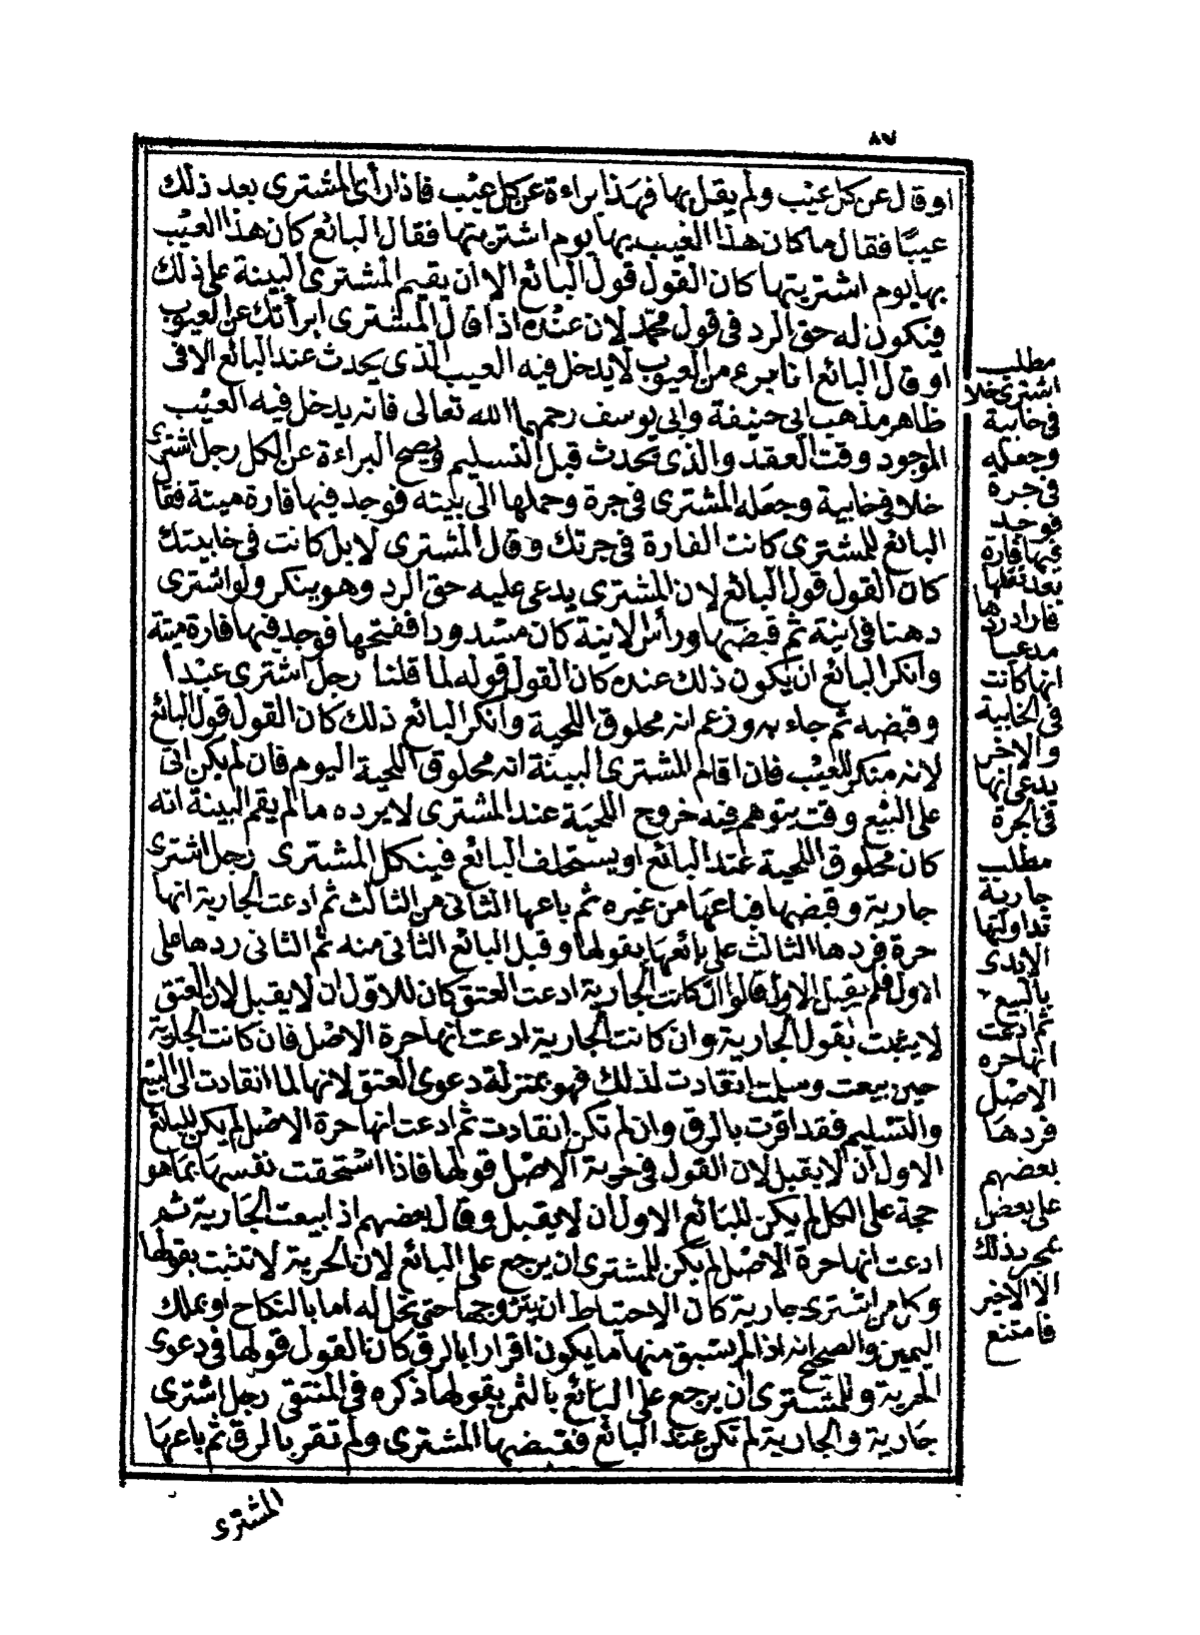 ٨٧
او قال عن كل عيب ولم يقل بها فهذا براءة عن كل عيب فاذا رأى المشترى بعد ذلك
عيبا فقال ما كان هذا العيب بها يوم اشتريتها فقال البائع كان هذا العيب
بها يوم اشتريتها كان القول قول البائع الا ان يقيم المشترى البينة على ذلك
فيكون له حق الرد فى قول محمد لان عنده اذا قال المشترى ابرأتك عن العيوب
او قال البائع انا برىء من العيوب لا يدخل فيه العيب الذى يحدث عند البائع الا فى
ظاهر مذهب ابى حنيفة وابى يوسف رحمهما الله تعالى فانه يدخل فيه العيب
الموجود وقت العقد والذى يحدث قبل التسليم ويصح البراءة عن الكل رجل اشترى
خلا فى خابية وجعله المشترى فى جرة وحملها الى بيته فوجد فيها فارة ميتة فقال
البائع للمشترى كانت الفارة فى جرتك وقال المشترى لا بل كانت فى خابيتك
كان القول قول البائع لان المشترى يدعى عليه حق الرد وهو ينكر ولو اشترى
دهنا فى انية ثم قبضها ورأس الانية كان مسدودا ففتحها فوجد فيها فارة ميتة
وانكر البائع ان يكون ذلك عنده كان القول قوله لما قلنا رجل اشترى عبدا
وقبضه ثم جاء به وزعم انه محلوق اللحية وانكر البائع ذلك كان القول قول البائع
لانه منكر للعيب فان اقام المشترى البينة انه محلوق اللحية اليوم فان لم يكن اتى
على البيع وقت يتوهم فيه خروج اللحية عند المشترى لا يرده ما لم يقم البينة انه
كان محلوق اللحية عند البائع او يستحلف البائع فينكل المشترى رجل اشترى
جارية وقبضها فباعها من غيره ثم باعها الثانى من الثالث ثم ادعت الجارية انها
حرة فردها الثالث على بائعها بقولها وقبل البائع الثانى منه ثم الثانى ردها على
الاول فلم يقبل الاول قالوا ان كانت الجارية ادعت العتق كان للاول ان لا يقبل لان العتق
لا يثبت بقول الجارية وان كانت الجارية ادعت انها حرة الاصل فان كانت الجارية
حين بيعت وسلمت انقادت لذلك فهو بمنزلة دعوى العتق لانها لما انقادت الى البيع
والتسليم فقد اقرت بالرق وان لم تكن انقادت ثم ادعت انها حرة الاصل لم يكن للبائع
الاول ان لا يقبل لان القول فى حرية الاصل قولها فاذا استحقت نفسها بما هو
حجة على الكل لم يكن للبائع الاول ان لا يقبل وقال بعضهم اذا بيعت الجارية ثم
ادعت انها حرة الاصل لم يكن للمشترى ان يرجع على البائع لان الحرية لا تثبت بقولها
وكل من اشترى جارية كان الاحتياط ان يتزوجها حتى تحل له اما بالنكاح او بملك
اليمين والصحيح انه اذا لم يسبق منها ما يكون اقرارا بالرق كان القول قولها فى دعوى
الحرية وللمشترى ان يرجع على البائع بالثمن بقولها ذكره فى المنتقى رجل اشترى
جارية والجارية لم تكن عند البائع فقبضها المشترى ولم تقر بالرق ثم باعها
المشترى
مطلب
اشترى خلا
فى خابية
وجعله
فى جرة
فوجد
فيها فارة
بعد نقلها
فاراد ردها
مدعيا
انها كانت
فى الخابية
والاخر
يدعى انها
فى الجرة
مطلب
جارية
تداولتها
الايدى
بالبيع
ثم ادعت
انها حرة
الاصل
فردها
بعضهم
على بعض
بمجرد ذلك
الا الاخير
فامتنع